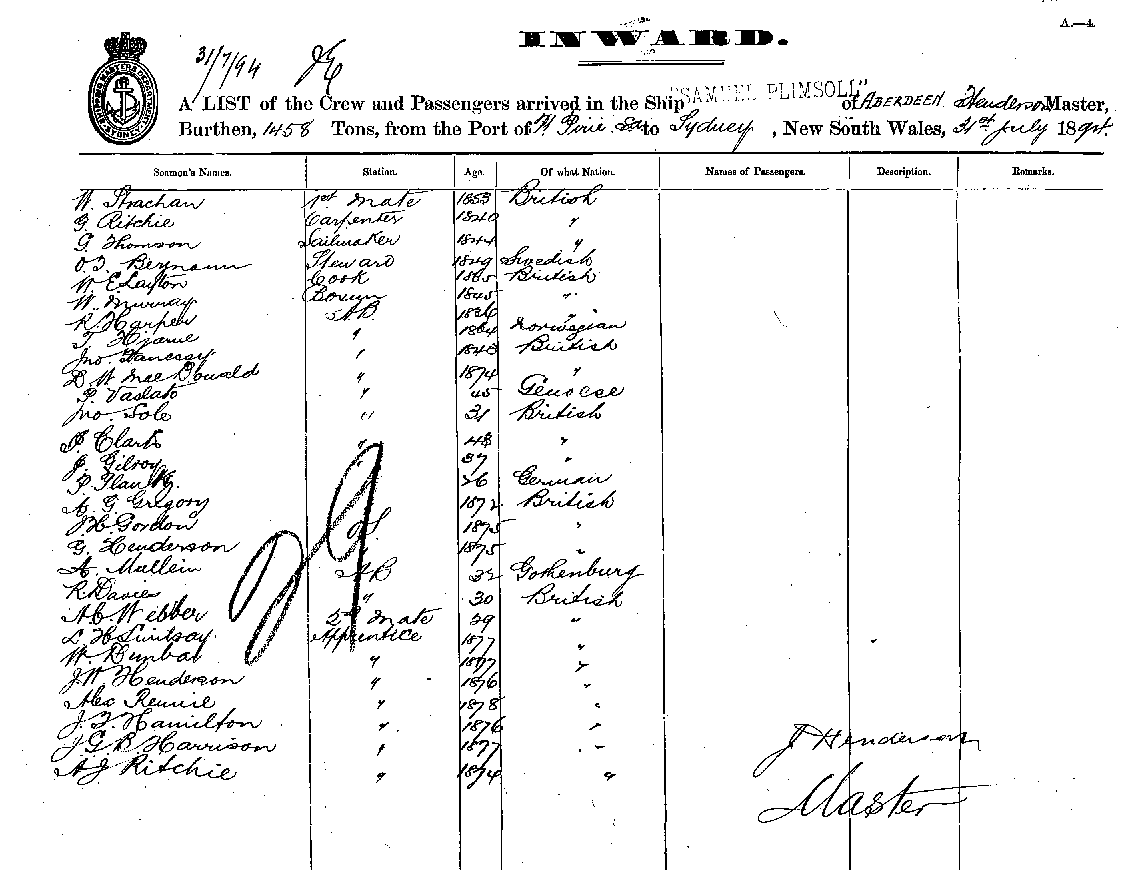 A.—4.
INWARD.
31/7/94
A LIST of the Crew and Passengers arrived in the Ship "SAMUEL PLIMSOLL" of ABERDEEN Henderson Master,
Burthen, 1458 Tons, from the Port of Pt Pirie SA to Sydney, New South Wales, 31st July 1894.
Seaman's Names. Station. Age. Of what Nation. Names of Passengers. Description. Remarks.
W. Strachan 1st Mate 1853 British
G. Ritchie Carpenter 1840 "
G. Thomson Sailmaker 1844 "
O.J. Bermann Steward 1849 Swedish
W. E Layton Cook 1865 British
W. Murray Bosun 1845 "
R Harper AB 1826
T. Hjarne " 1864 Norwegian
Jno. Hanessy " 1843 British
D W MacDonald " 1874 "
P. Vaslato " 45 Genoese
Jno. Sole " 31 British
Clark " 48 "
J. Gilroy 37 "
P. 26 German
A. G. Gregory 1872 British
Gordon OS 1875 "
G. Henderson " 1875 "
A. Mallein AB 32 Gothenburg
R Davies " 30 British
A C Webber 2nd Mate 29 "
L H Lindsay Apprentice 1877 "
W. Dunbar " 1877 "
J.W Henderson " 1876 "
Alex Rennie " 1878 "
J. F. Hamilton " 1876 "
J G B Harrison " 1877 "
A J Ritchie " 1874 "
29
J Henderson
Master